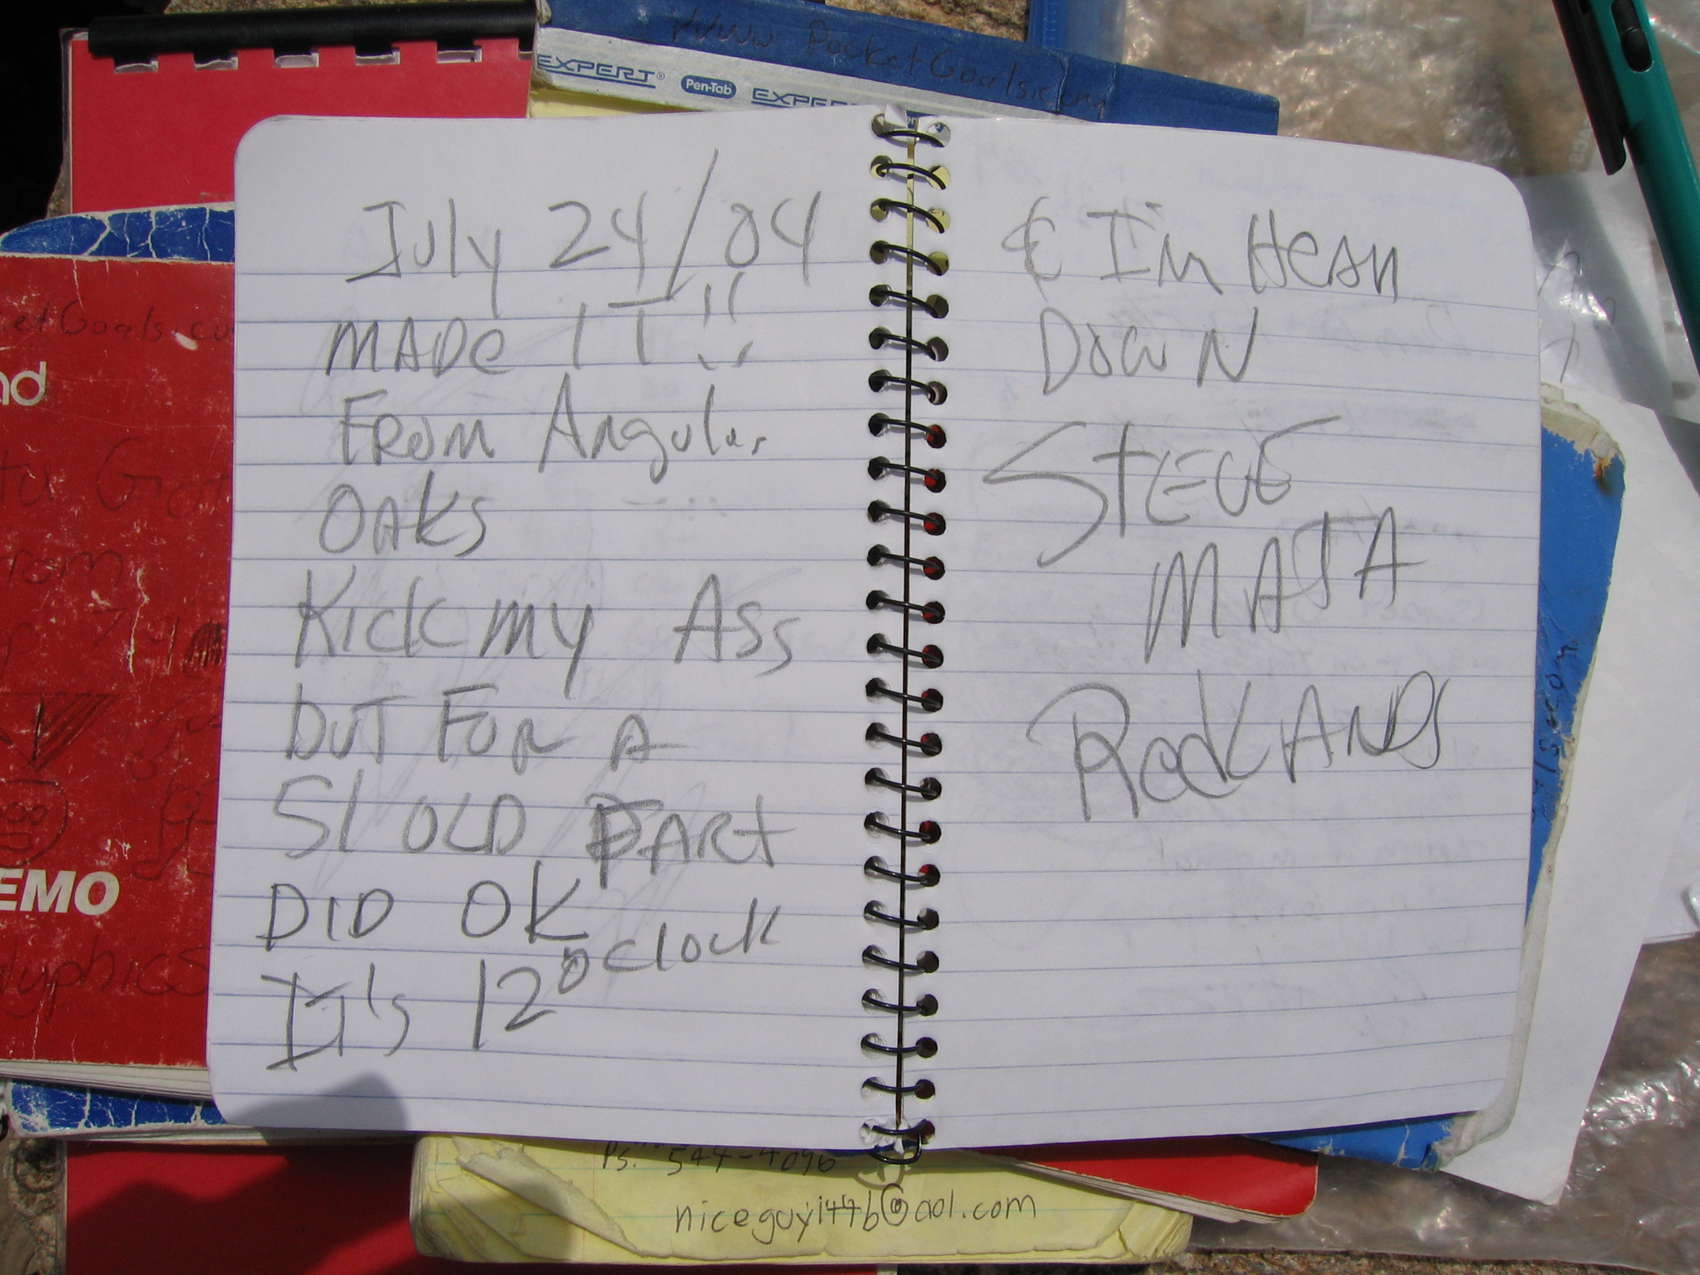 www PocketGoals.com
EXPERT® Pen-Tab EXPER
July 24/04
MADe IT !!
From Angular
OAKS
Kick my Ass
but For A
51 OLD FART
DID OK
It's 12 o'clock
& I'm HeAn
DowN
STEVE
MATA
RedLANDS
etGoals.co
nd
EMO
lyphics
Ps. 544-4096
niceguy1446@aol.com